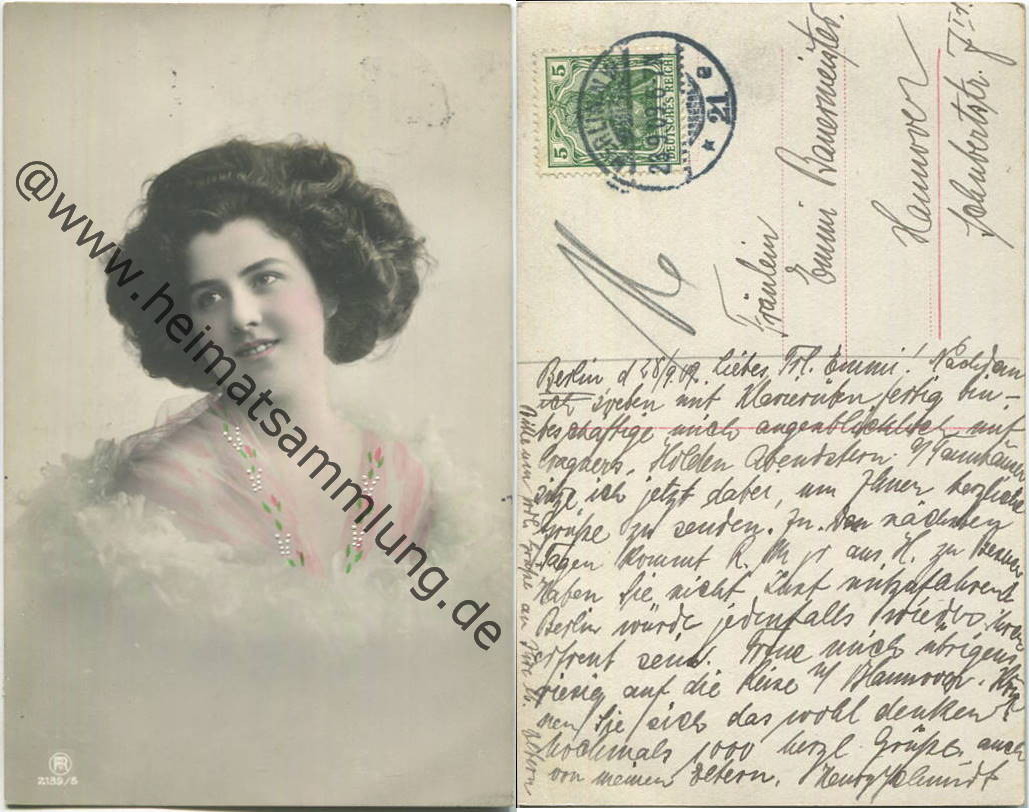 @www.heimatsammlung.de
2139/5
5
5
DEUTSCHES REICH
BERLIN
28.9.09
* 21 e
Fräulein
Emmi Bauermeister
Hannover
Berlin, d 28/9.09. Liebes Frl. Emmi! Nachdem
ich soeben mit Klavierüben fertig bin –
beschäftige mich augenblicklich mit
Wagners. Holden Abendstern. a/ Tannhäuser
sitze ich jetzt dabei, um Ihnen herzliche
Grüße zu senden. In den nächsten
Tagen kommt R. M jr aus H. zu
Haben Sie nicht Lust mitzufahren?
Berlin würde jedenfalls
erfreut sein. Freue mich übrigens
riesig auf die Reise n/ Hannover. Kön-
nen Sie sich das wohl denken?
Nochmals 1000 herzl Grüße auch
von meinen Eltern. Henry Schmidt